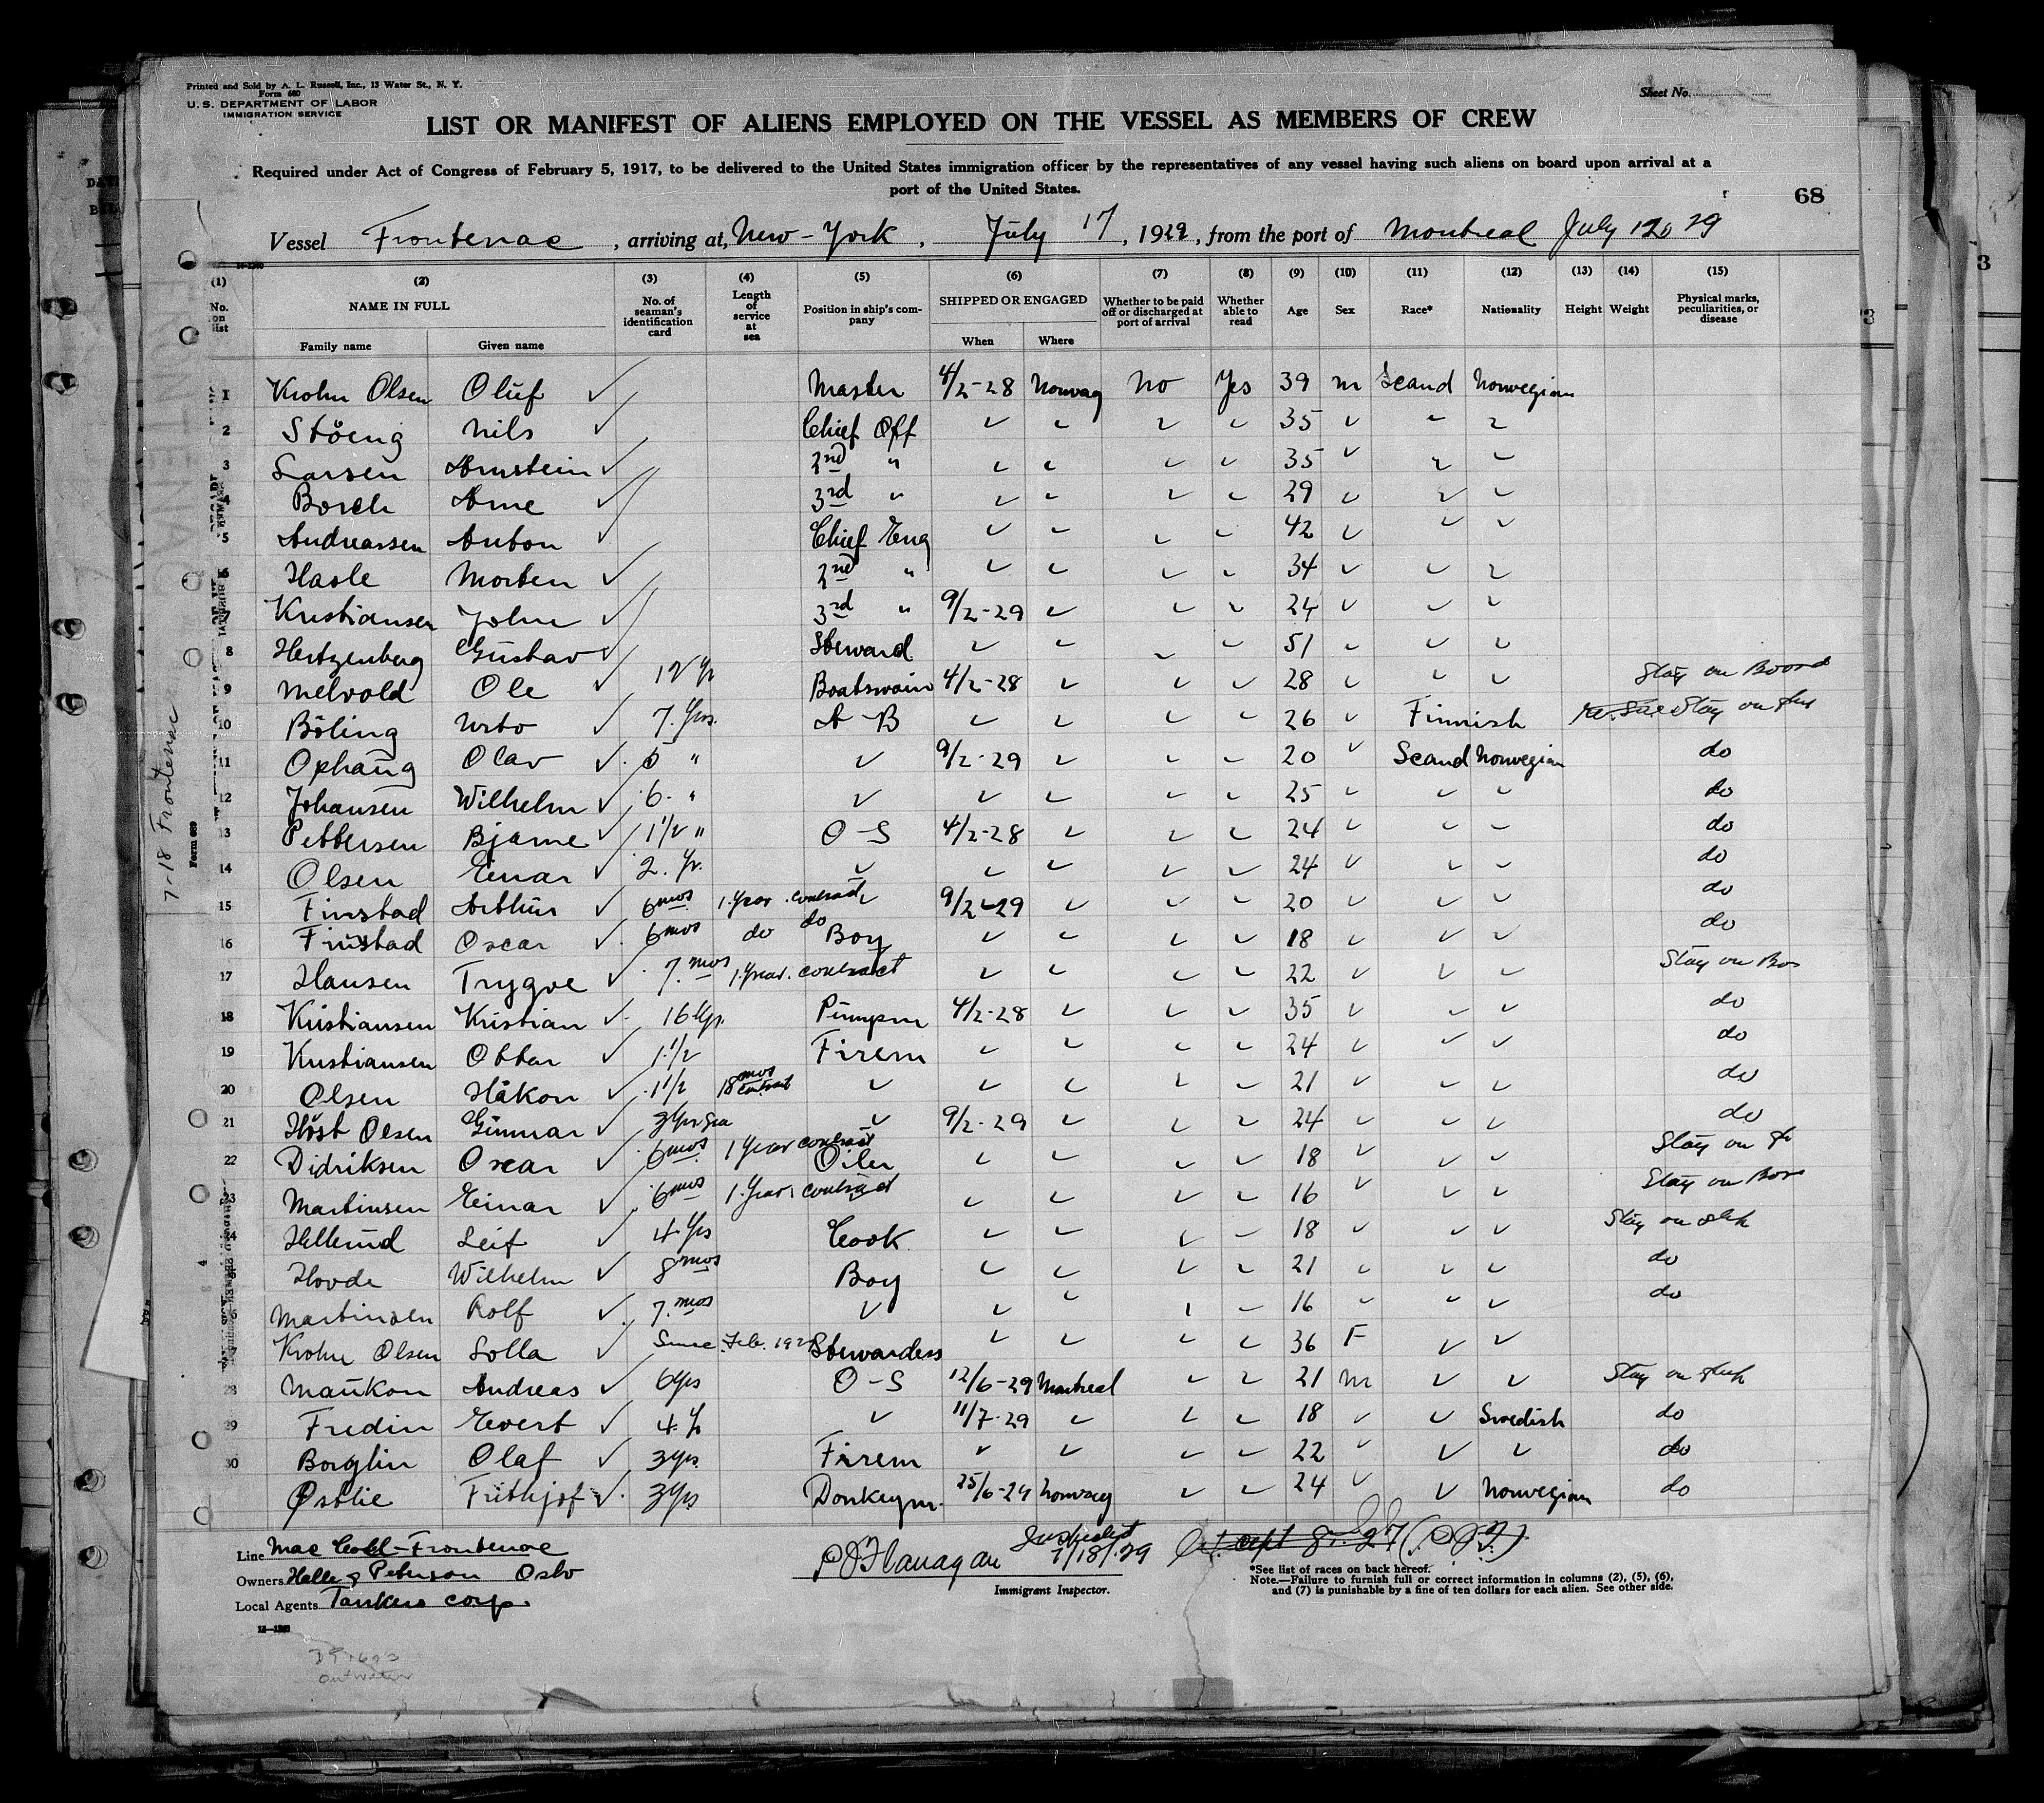 Printed and Sold by A. L. Russell, Inc., 13 Water St., N. Y.
Form 680
U. S. DEPARTMENT OF LABOR
IMMIGRATION SERVICE
Sheet No.
LIST OR MANIFEST OF ALIENS EMPLOYED ON THE VESSEL AS MEMBERS OF CREW
Required under Act of Congress of February 5, 1917, to be delivered to the United States immigration officer by the representatives of any vessel having such aliens on board upon arrival at a
port of the United States.
68
Vessel Frontenac, arriving at, New-York, July 17, 1929, from the port of Montreal July 12 29
(1) (2) (3) (4) (5) (6) (7) (8) (9) (10) (11) (12) (13) (14) (15)
No. on list NAME IN FULL No. of seaman's identification card Length of service at sea Position in ship's company SHIPPED OR ENGAGED Whether to be paid off or discharged at port of arrival Whether able to read Age Sex Race* Nationality Height Weight Physical marks, peculiarities, or disease
Family name Given name When Where
1 Krohn Olsen Oluf ✓ Master 4/2-28 Norway No Yes 39 m Scand Norwegian
2 Stöeng Nils ✓ Chief Off ✓ ✓ ✓ ✓ 35 ✓ ✓ ✓
3 Larsen Arnstein ✓ 2nd " ✓ ✓ ✓ ✓ 35 ✓ ✓ ✓
4 Borch Arne ✓ 3rd " ✓ ✓ ✓ ✓ 29 ✓ ✓ ✓
5 Andreassen Anton ✓ Chief Eng ✓ ✓ ✓ ✓ 42 ✓ ✓ ✓
6 Hasle Morten ✓ 2nd " ✓ ✓ ✓ ✓ 34 ✓ ✓ ✓
7 Kristiansen John ✓ 3rd " 9/2-29 ✓ ✓ ✓ 24 ✓ ✓ ✓
8 Hertzenberg Gustav ✓ Steward ✓ ✓ ✓ ✓ 51 ✓ ✓ ✓
9 Melvold Ole ✓ 12 Yr Boatswain 4/2-28 ✓ ✓ ✓ 28 ✓ ✓ ✓ Stay on Board
10 Böling Urbo ✓ 7. Yrs. A-B ✓ ✓ ✓ ✓ 26 ✓ Finnish Stay on
11 Ophaug Olav ✓ 5 " ✓ 9/2-29 ✓ ✓ ✓ 20 ✓ Scand Norwegian do
12 Johansen Wilhelm ✓ 6. " ✓ ✓ ✓ ✓ ✓ 25 ✓ ✓ ✓ do
13 Pettersen Bjarne ✓ 1 1/2 " O-S 4/2-28 ✓ ✓ ✓ 24 ✓ ✓ ✓ do
14 Olsen Einar ✓ 2. Yr. ✓ ✓ ✓ ✓ ✓ 24 ✓ ✓ ✓ do
15 Finstad Arthur ✓ 6 mos 1. Year. contract ✓ 9/2-29 ✓ ✓ ✓ 20 ✓ ✓ ✓ do
16 Finstad Oscar ✓ 6 mos do do Boy ✓ ✓ ✓ ✓ 18 ✓ ✓ ✓ do
17 Hansen Trygve ✓ 7. mos 1. Year. contract ✓ ✓ ✓ ✓ 22 ✓ ✓ ✓ Stay on Bos
18 Kristiansen Kristian ✓ 16 Yr. Pumpm 4/2-28 ✓ ✓ ✓ 35 ✓ ✓ ✓ do
19 Kristiansen Ottar ✓ 1.1/2 Firem ✓ ✓ ✓ ✓ 24 ✓ ✓ ✓ do
20 Olsen Håkon ✓ 1 1/2 18 mos contract ✓ ✓ ✓ ✓ ✓ 21 ✓ ✓ ✓ do
21 Höst Olsen Gunnar ✓ 3 Yrs Sea ✓ 9/2-29 ✓ ✓ ✓ 24 ✓ ✓ ✓ do
22 Didriksen Oscar ✓ 6 mos 1 Year contract Oiler ✓ ✓ ✓ ✓ 18 ✓ ✓ ✓ Stay on
23 Martinsen Einar ✓ 6 mos 1. Year contract ✓ ✓ ✓ ✓ 16 ✓ ✓ ✓ Stay on Bos
24 Hellerud Leif ✓ 4 Yrs Cook ✓ ✓ ✓ ✓ 18 ✓ ✓ ✓ Stay on
Hovde Wilhelm ✓ 8 mos Boy ✓ ✓ ✓ ✓ 21 ✓ ✓ ✓ do
6 Martinsen Rolf ✓ 7. mos ✓ ✓ ✓ ✓ ✓ 16 ✓ ✓ ✓ do
7 Krohn Olsen Solla ✓ Since Feb. 192 Stewardess ✓ ✓ ✓ ✓ 36 F ✓ ✓
28 Maukon Andreas ✓ 6 Yrs O-S 12/6-29 Montreal ✓ ✓ 21 m ✓ ✓ Stay on
29 Fredin Evert ✓ 4 Y ✓ 11/7-29 ✓ ✓ ✓ 18 ✓ ✓ Swedish do
30 Borglin Olaf ✓ 3 Yrs. Firem ✓ ✓ ✓ ✓ 22 ✓ ✓ ✓ do
Østlie Frithjof ✓ 3 Yrs Donkeym. 25/6-29 Norway ✓ ✓ 24 ✓ ✓ Norwegian do
Line Mac Coll-Frontenac
Owners Halle & Peterson Oslo
Local Agents Tankers Corp.
P O'Flanagan Inspected 7/18/29
Immigrant Inspector.
*See list of races on back hereof.
Note.—Failure to furnish full or correct information in columns (2), (5), (6),
and (7) is punishable by a fine of ten dollars for each alien. See other side.
7-18 Frontenac
Form 689